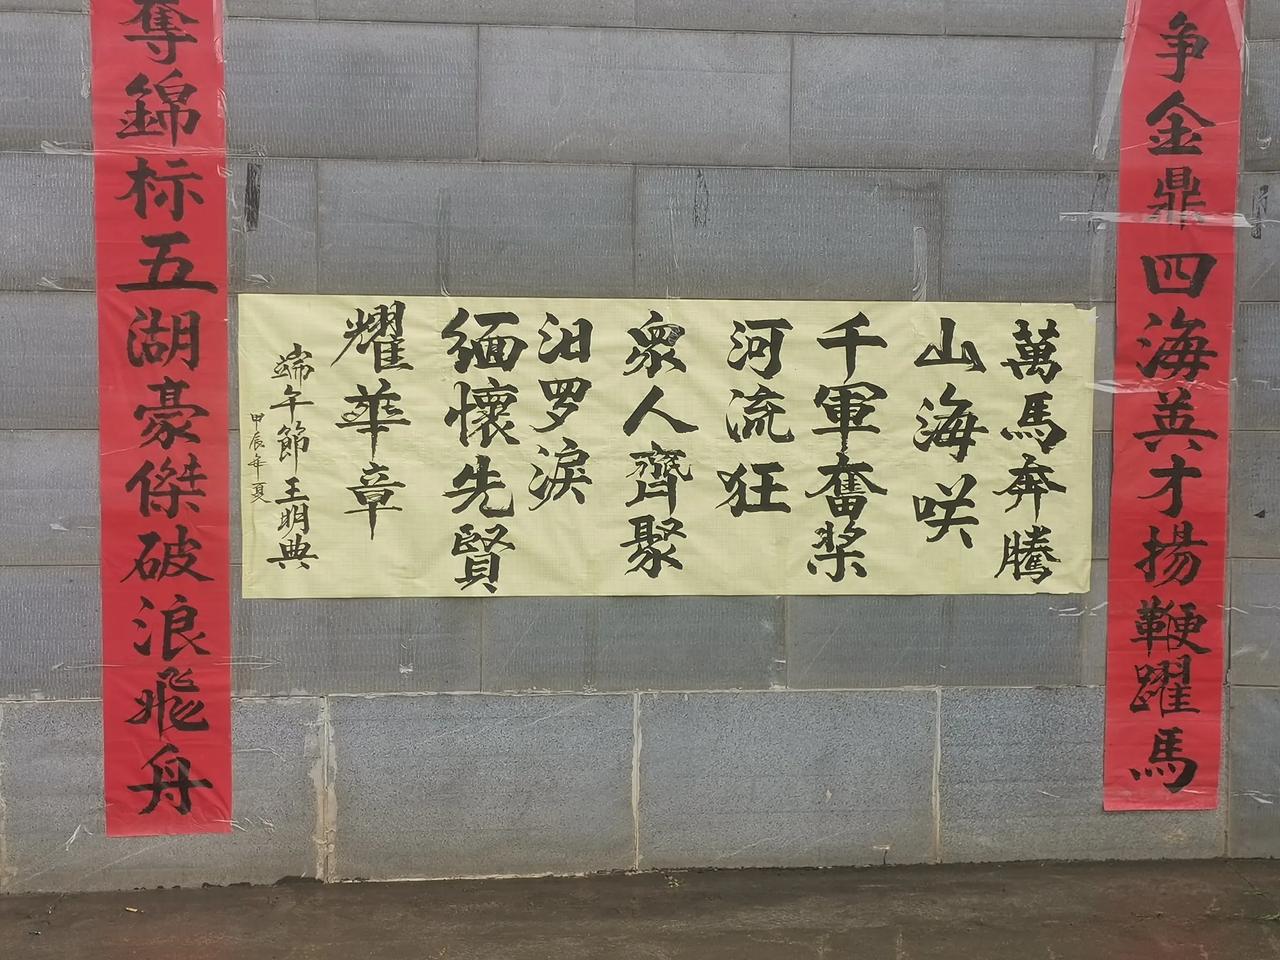 争金鼎四海英才揚鞭躍馬
萬馬奔騰
山海咲
千軍奮槳
河流狂
衆人齊聚
汨罗淚
缅懷先賢
耀華章
端午節王明典
甲辰年夏
奪錦标五湖豪傑破浪飛舟